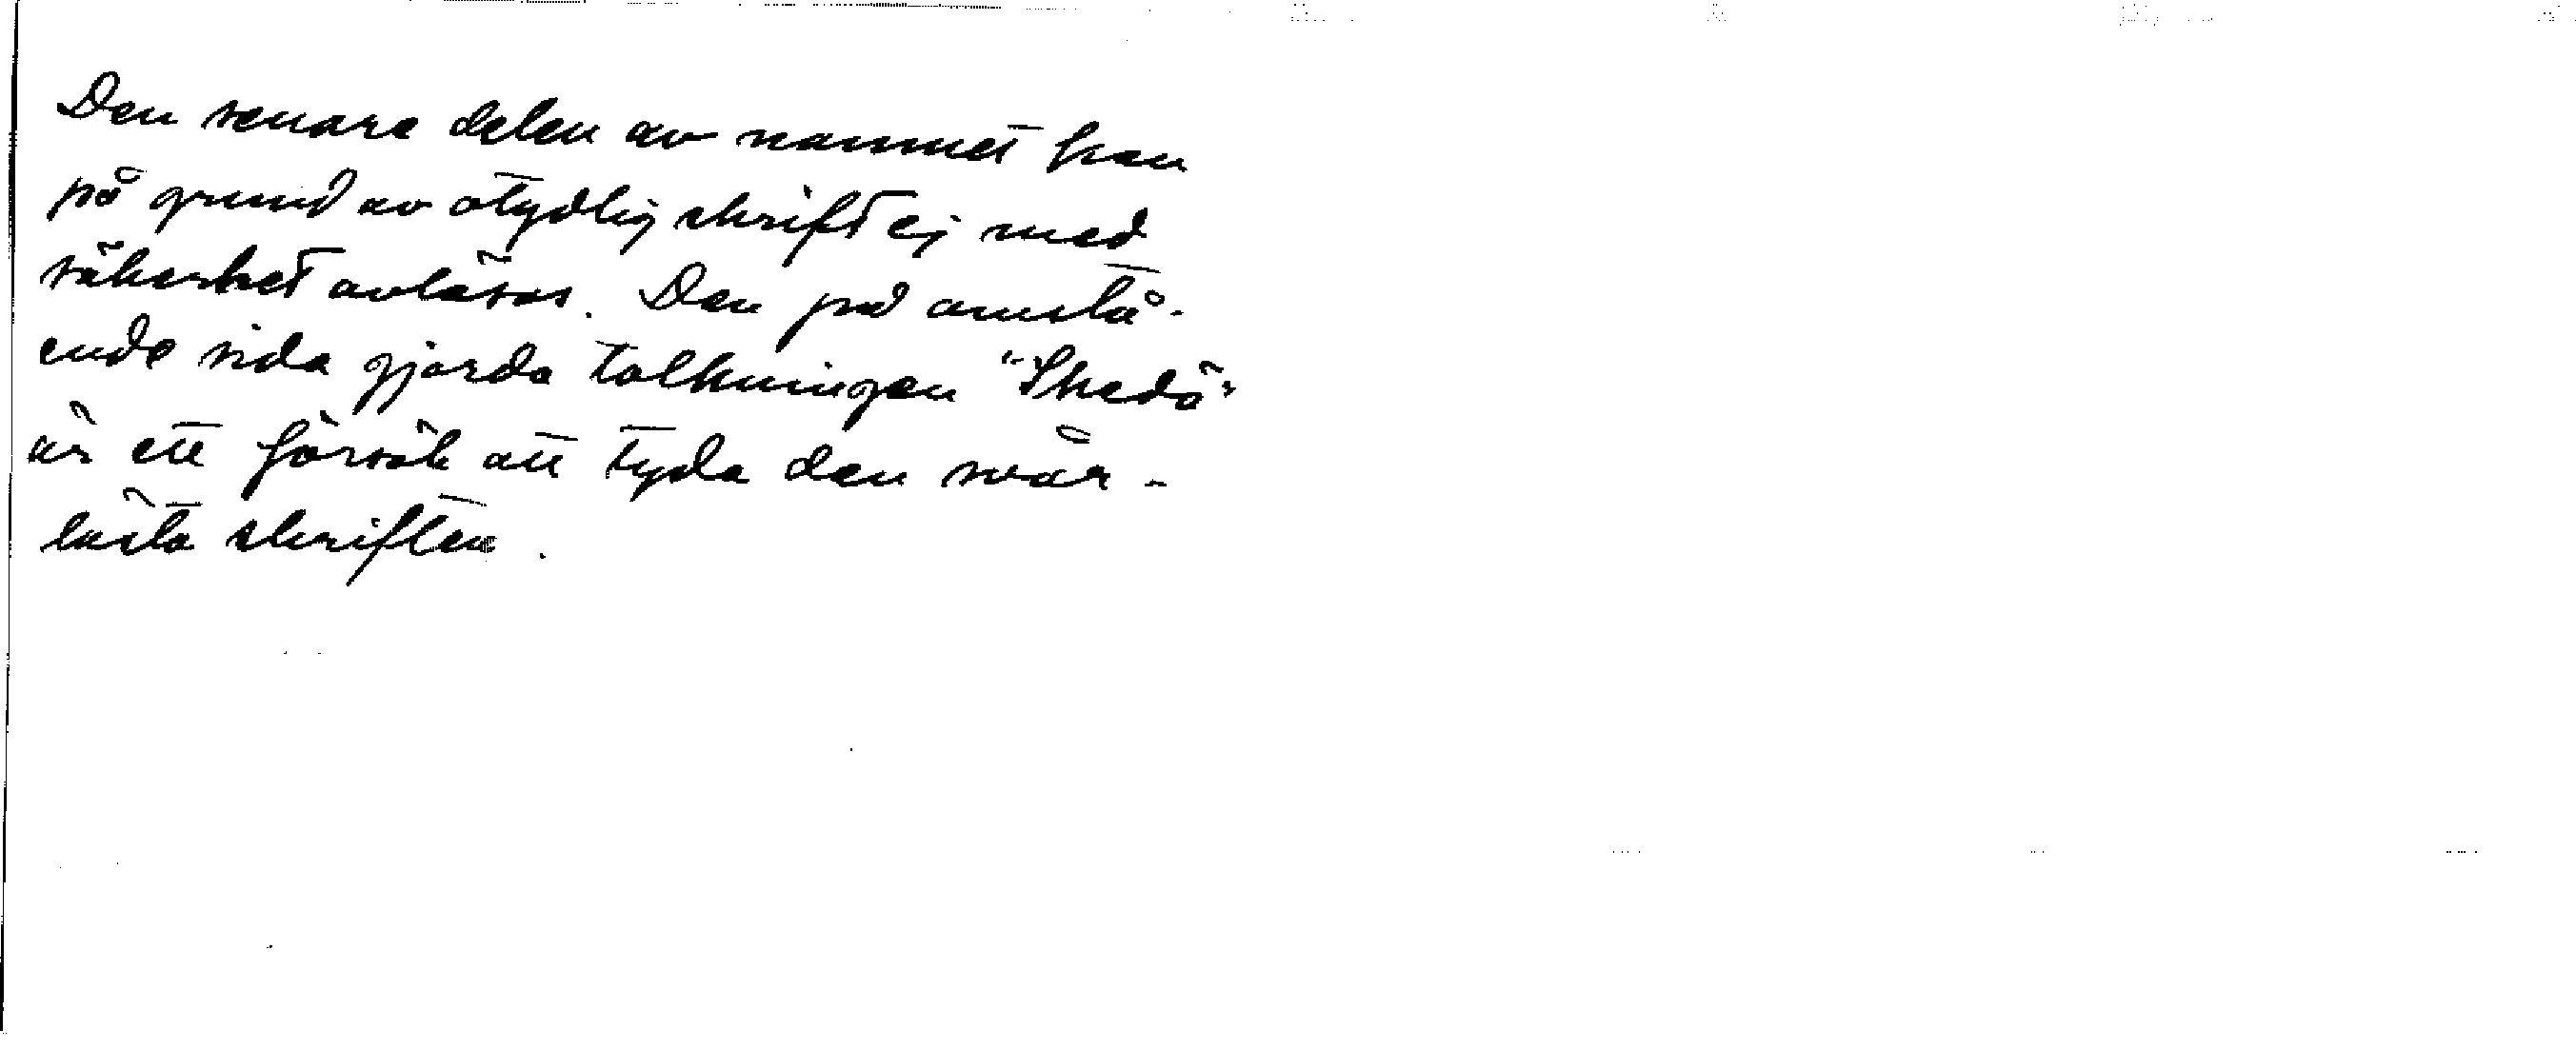 Den senare delen av namnet kan
på grund av otydlig skrift ej med
säkerhet avläsas. Den på omstå-
ende sida gjorda tolkningen "Skedö"
är ett försök att tyda den svår-
lästa skriften.